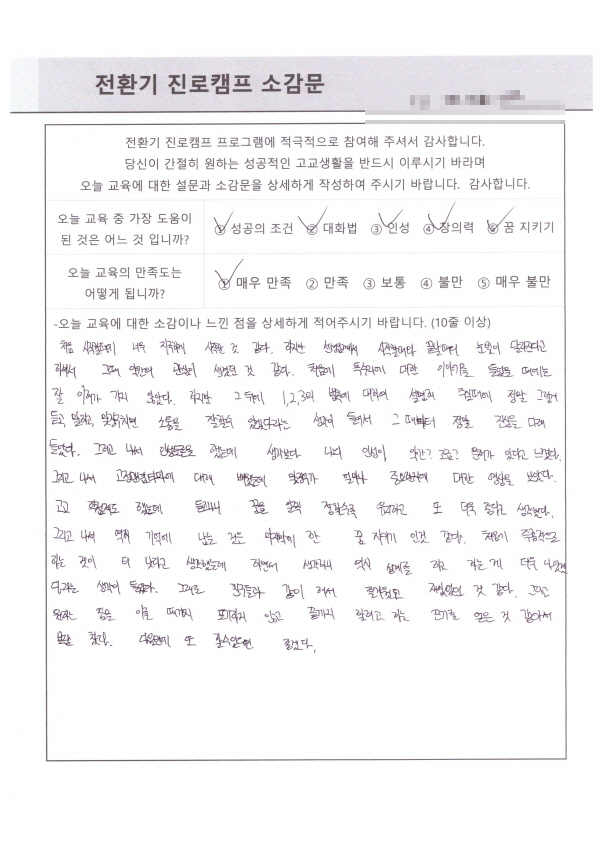 전환기 진로캠프 소감문
전환기 진로캠프 프로그램에 적극적으로 참여해 주셔서 감사합니다.
당신이 간절히 원하는 성공적인 고교생활을 반드시 이루시기 바라며
오늘 교육에 대한 설문과 소감문을 상세하게 작성하여 주시기 바랍니다. 감사합니다.
오늘 교육 중 가장 도움이
된 것은 어느 것 입니까?
① 성공의 조건 ② 대화법 ③ 인성 ④ 창의력 ⑤ 꿈 지키기
오늘 교육의 만족도는
어떻게 됩니까?
① 매우 만족 ② 만족 ③ 보통 ④ 불만 ⑤ 매우 불만
-오늘 교육에 대한 소감이나 느낀 점을 상세하게 적어주시기 바랍니다. (10줄 이상)
처음 시작할때 너무 시작한 것 같다. 하지만 선생님께서 시작할때와 끝날때의 눈빛이 달라진다고
하셔서 그때 약간의 관심이 생겼던 것 같다. 처음에 대한 이야기를 들었을 때에는
잘 이해가 가지 않았다. 하지만 그 뒤에 1,2,3의 법칙에 대하여 정말 그렇게
듣고, 말하고, 맞장구치면 소통을 잘할수 있겠다라는 생각이 들어서 그 때부터 정말 관심을 다해
들었다. 그리고 나서 했는데 생각보다 나의 인성이 약간? 조금? 문제가 있다고 느꼈다.
그리고 나서 대해 배웠는데 대한 영상을 보았다.
했는데 꿈을 일찍 정할수록 유리하고 또 더욱 좋다고 생각했다.
그리고 나서 역시 기억에 남는 것은 마지막에 한 꿈 지키기 인것 같다.
하는 것이 더 낫다고 생각했는데 하면서 생각하니 역시 설계를 하고 하는게 더욱 나았겠
다라는 생각이 들었다. 그래도 친구들과 같이 해서 즐거웠고 재밌었던 것 같다. 그리고
원하는 꿈을 이룰 때까지 포기하지 않고 끝까지 하는 것 같아서
정말 좋다. 다음번에 또 할수있으면 좋겠다.